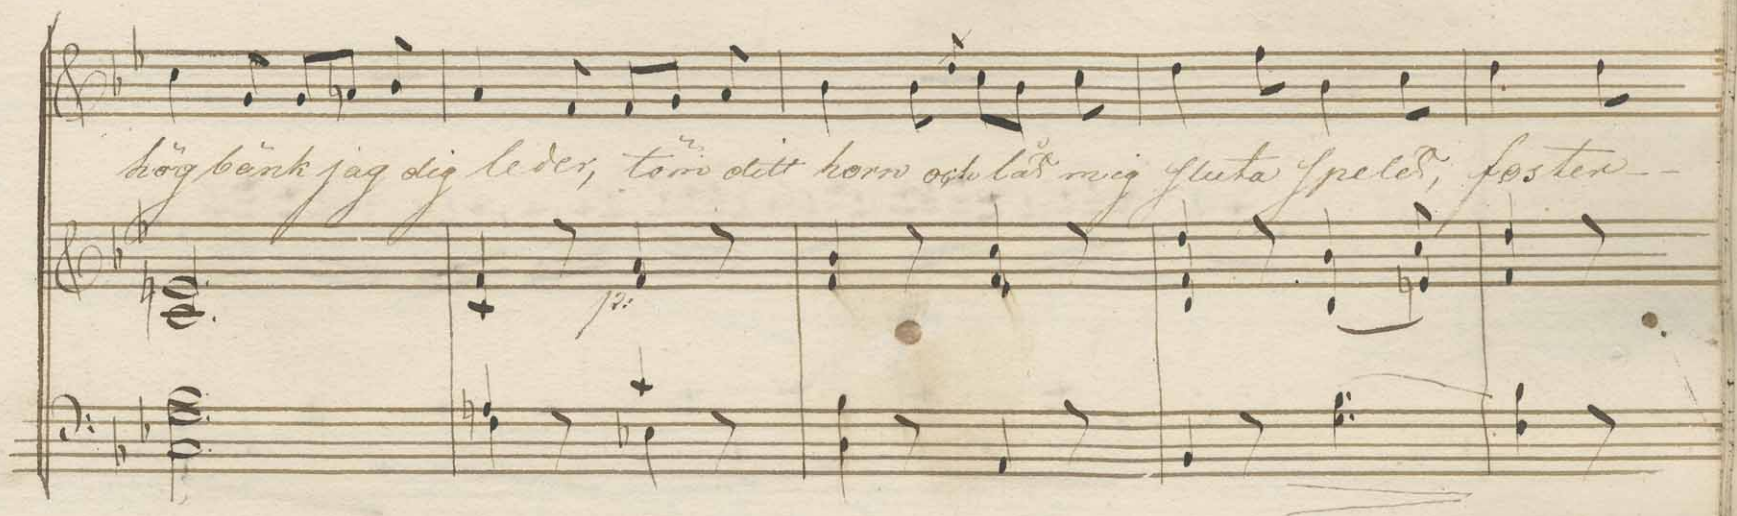 högbänk jag dig leder, töm ditt horn och låt mig sluta spelet, foster--
p: